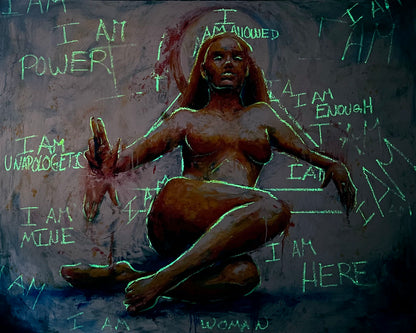 I AM
I
AM ALLOWED
I AM
POWER
I
AM
I AM
ENOUGH
I AM
I AM
UNAPOLOGETIC
I AM
I AM
I AM
MINE
I AM
HERE
AM
I AM
WOMAN